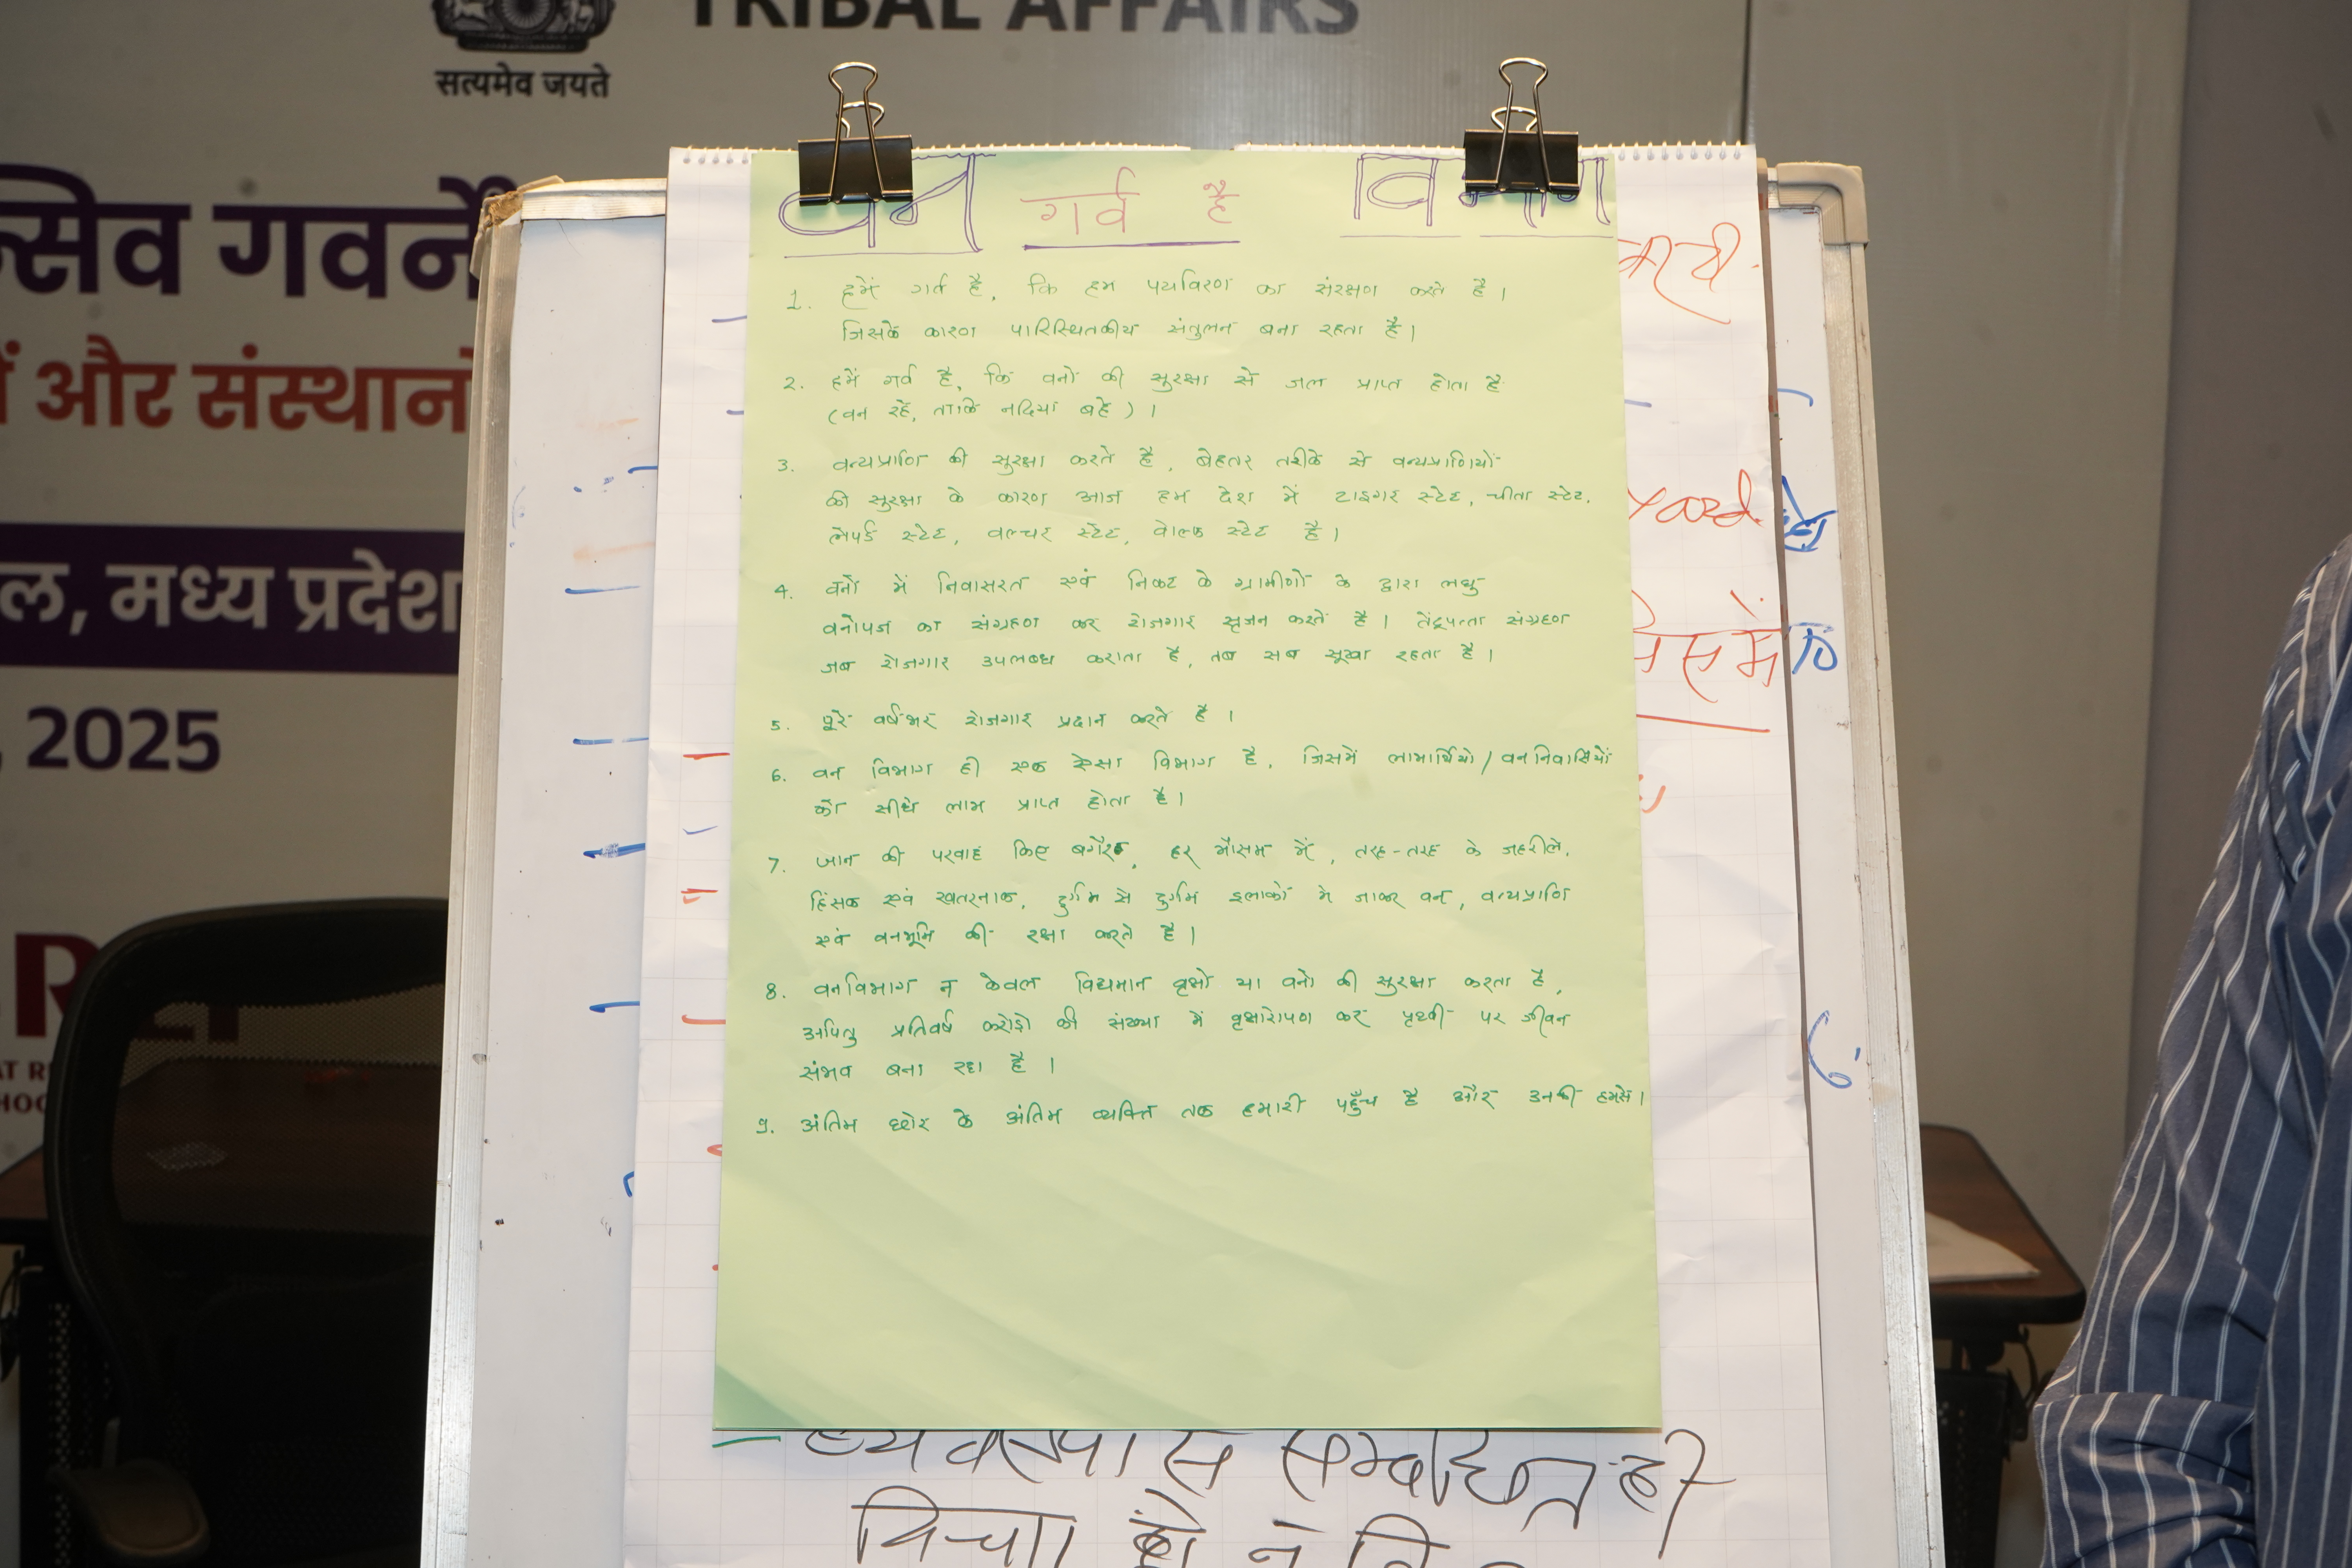 TRIBAL AFFAIRS
सत्यमेव जयते
सिव गवर्ने
में और संस्थानो
ल, मध्य प्रदेश
, 2025
वन गर्व है विभाग
1. हमें गर्व है, कि हम पर्यावरण का संरक्षण करते है।
जिसके कारण पारिस्थितकीय संतुलन बना रहता है।
2. हमें गर्व है, कि वनों की सुरक्षा से जल प्राप्त होता है
(वन रहें, ताकि नदियां बहें)।
3. वन्यप्राणि की सुरक्षा करते है, बेहतर तरीके से वन्यप्राणियों
की सुरक्षा के कारण आज हम देश में टाइगर स्टेट, चीता स्टेट,
लेपर्ड स्टेट, वल्चर स्टेट, वोल्फ स्टेट है।
4. वनों में निवासरत एवं निकट के ग्रामीणों के द्वारा लघु
वनोपज का संग्रहण कर रोजगार सृजन करतें है। तेंदूपत्ता संग्रहण
जब रोजगार उपलब्ध कराता है, तब सब सूखा रहता है।
5. पूरे वर्षभर रोजगार प्रदान करते है।
6. वन विभाग ही एक ऐसा विभाग है, जिसमें लाभार्थियो/वननिवासियों
को सीधे लाभ प्राप्त होता है।
7. जान की परवाह किए बगैर, हर मौसम में, तरह-तरह के जहरीले,
हिंसक एवं खतरनाक, दुर्गम से दुर्गम इलाकों मे जाकर वन, वन्यप्राणि
एवं वनभूमि की रक्षा करते है।
8. वनविभाग न केवल विद्यमान वृक्षो या वनो की सुरक्षा करता है,
अपितु प्रतिवर्ष करोड़ो की संख्या में वृक्षारोपण कर पृथ्वी पर जीवन
संभव बना रहा है।
9. अंतिम छोर के अंतिम व्यक्ति तक हमारी पहुँच है और उनकी हमसे।
yard
समें
व्यवस्था से सम्बंधित ही